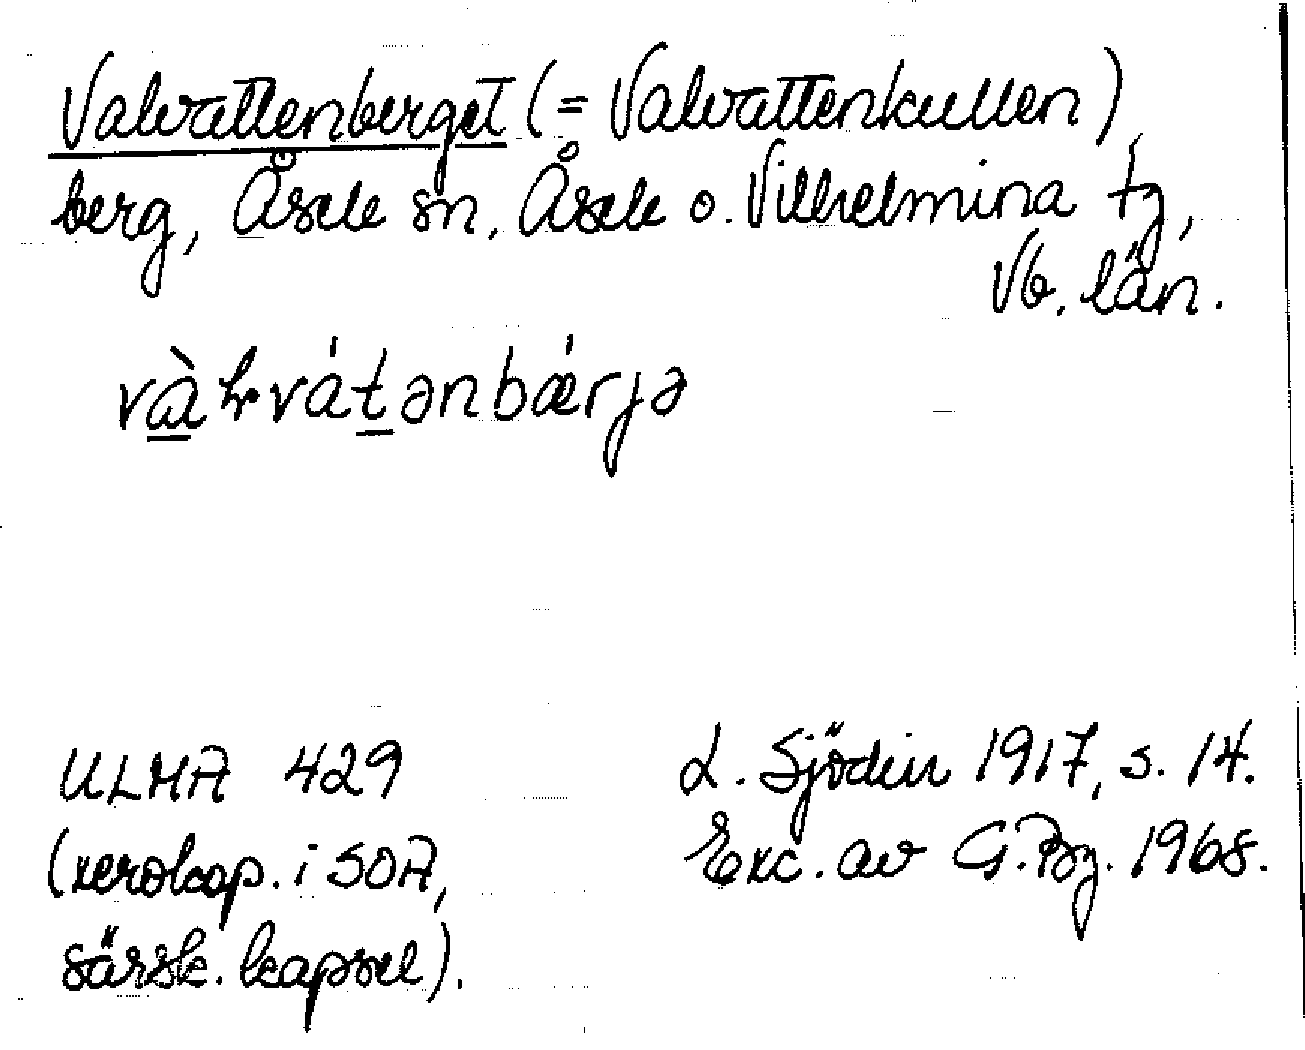 Valvattenberget (= Valvattenkullen)
berg, Åsele sn, Åsele o. Vilhelmina tg,
Vb. län.
vàɫvát̠ənbǽrjə
ULMA 429
(xerokop. i SOA,
särsk. kapsel).
L. Sjödin 1917, s. 14.
Exc. av G. Bg. 1968.